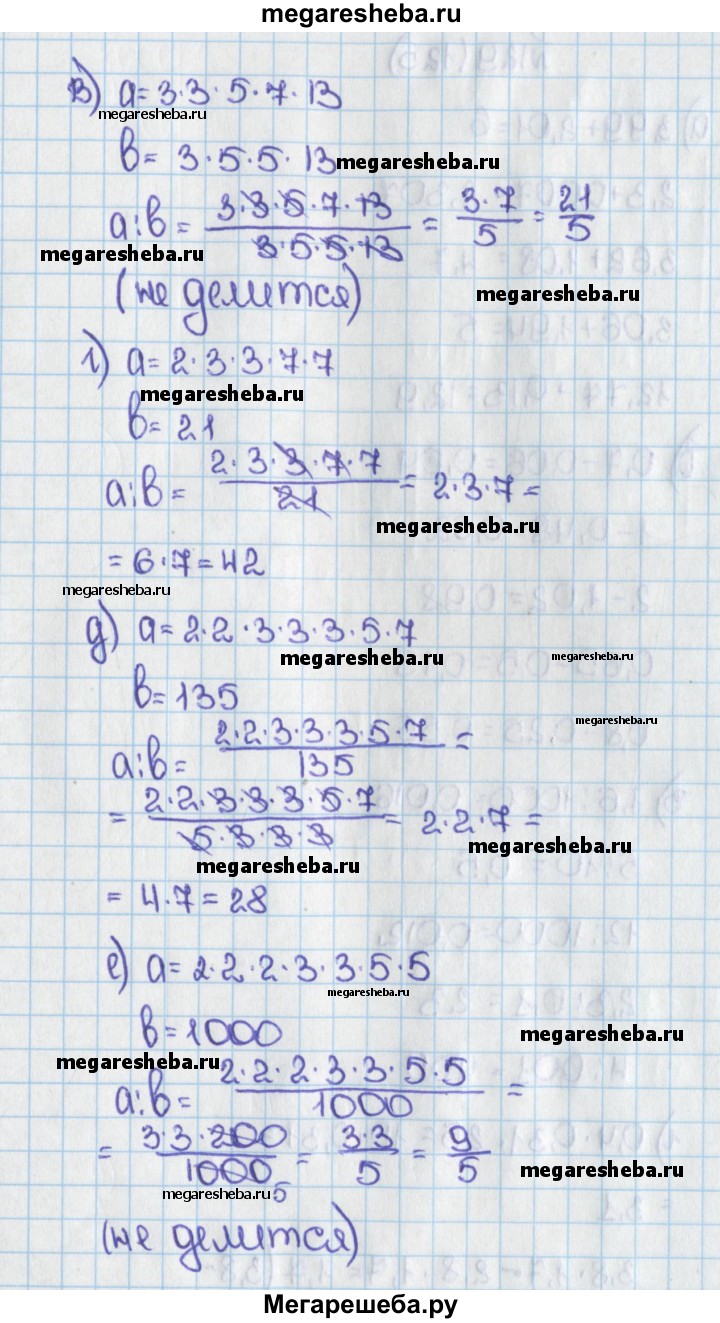 megaresheba.ru
в) a = 3·3·5·7·13
megaresheba.ru
b = 3·5·5·13 megaresheba.ru
a:b = 3·3·5·7·13 / 3·5·5·13 = 3·7 / 5 = 21 / 5
megaresheba.ru
(не делится) megaresheba.ru
г) a = 2·3·3·7·7
megaresheba.ru
b = 21
a:b = 2·3·3·7·7 / 21 = 2·3·7 =
megaresheba.ru
= 6·7 = 42
megaresheba.ru
д) a = 2·2·3·3·3·5·7
megaresheba.ru megaresheba.ru
b = 135
megaresheba.ru
a:b = 2·2·3·3·3·5·7 / 135 =
= 2·2·3·3·3·5·7 / 5·3·3·3 = 2·2·7 =
megaresheba.ru
megaresheba.ru
= 4·7 = 28
е) a = 2·2·2·3·3·5·5
megaresheba.ru
b = 1000 megaresheba.ru
megaresheba.ru
a:b = 2·2·2·3·3·5·5 / 1000 =
= 3·3·200 / 1000 5 = 3·3 / 5 = 9 / 5 megaresheba.ru
megaresheba.ru
(не делится)
Мегарешеба.ру